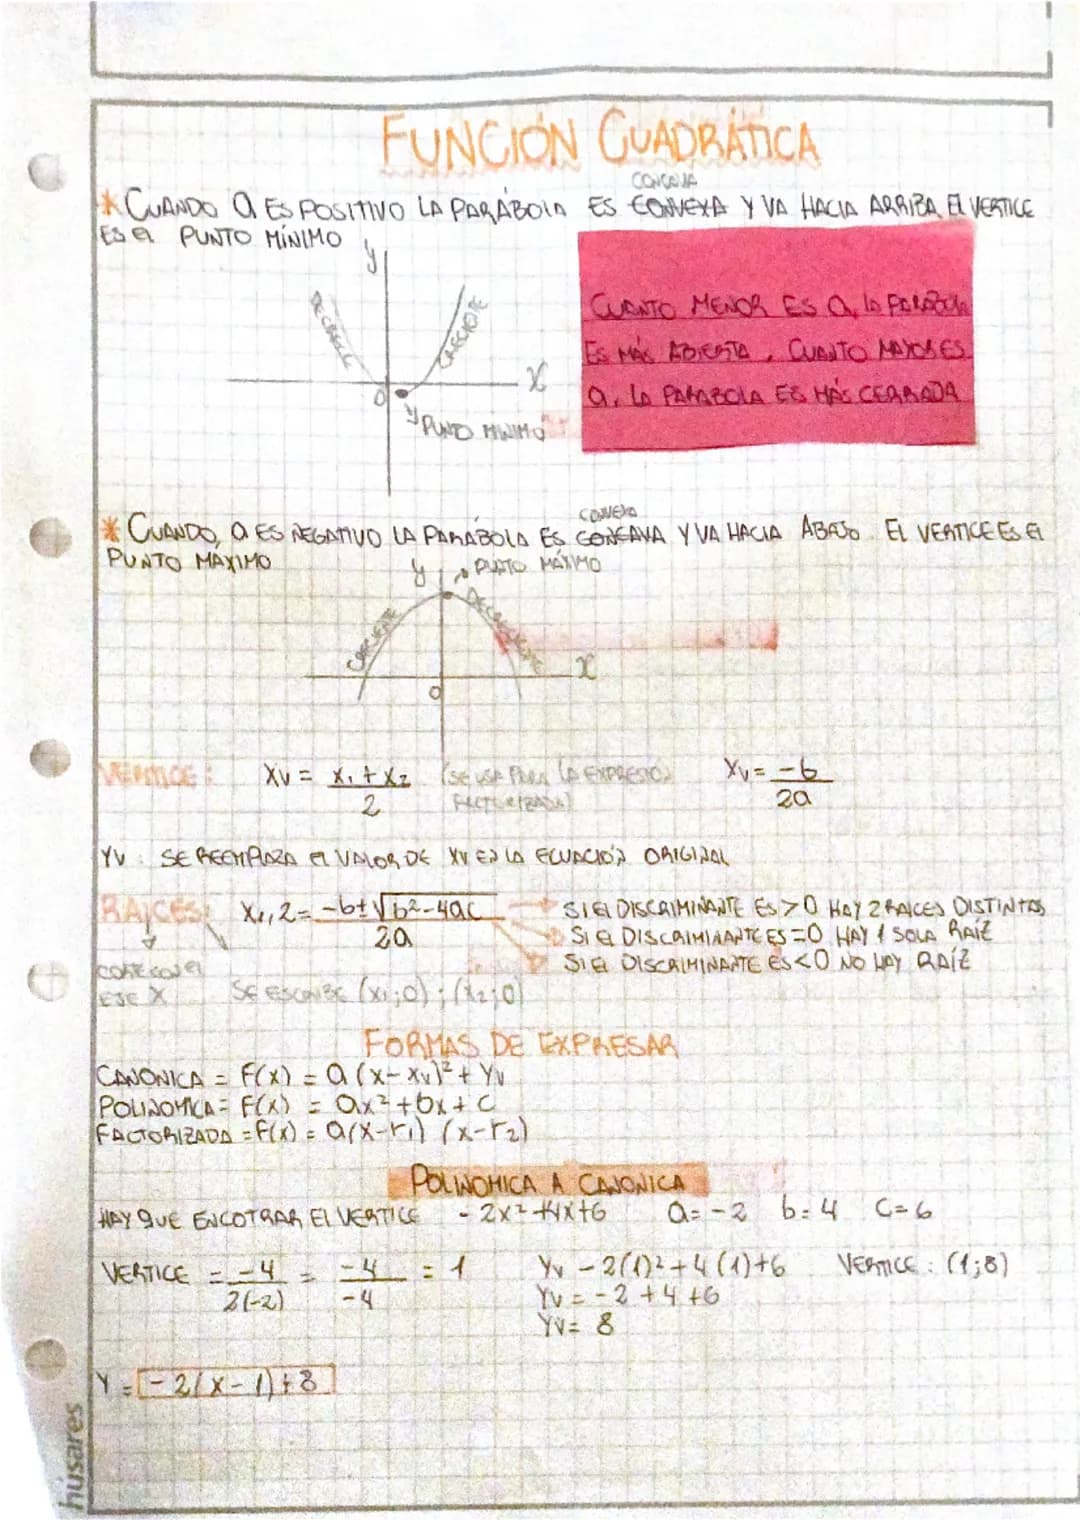 FUNCIÓN CUADRÁTICA
CONCAVA
* CUANDO a ES POSITIVO LA PARÁBOLA ES CONVEXA Y VA HACIA ARRIBA, El VERTICE
ES El PUNTO MÍNIMO
y
DECRECE
CRECIENTE
X
0
PUNTO MINIMO
CUANTO MENOR ES a, la PARÁBOLA
ES MÁS ABIERTA, CUANTO MAYOR ES
a, LA PARABOLA ES MÁS CERRADA
CONVEXA
* CUANDO, a ES NEGATIVO LA PARÁBOLA ES CONCAVA Y VA HACIA ABAJO. El VERTICE ES El
PUNTO MÁXIMO
y
PUNTO MÁXIMO
CRECIENTE
DECRECIENTE
X
0
VERTICE: Xv = x₁ + x₂ / 2 (SE USA PARA LA EXPRESION FACTORIZADA) Xv = -b / 2a
YV: SE REEMPLAZA El VALOR DE XV EN LA ECUACIÓN ORIGINAL
RAICES: X₁,₂ = -b±√b²-4ac / 2a
SI El DISCRIMINANTE ES >0 HAY 2 RAICES DISTINTAS
SI El DISCRIMINANTE ES =0 HAY 1 SOLA RAÍZ
SI El DISCRIMINANTE ES <0 NO HAY RAÍZ
CORTE CON El
EJE X
SE ESCRIBE (x₁;0) ; (x₂;0)
FORMAS DE EXPRESAR
CANONICA = F(x) = a(x-xv)² + Yv
POLINOMICA = F(x) = ax²+bx+c
FACTORIZADA = F(x) = a(x-r₁) (x-r₂)
POLINOMICA A CANONICA
HAY QUE ENCOTRAR El VERTICE -2x²+4x+6 a=-2 b=4 C=6
VERTICE = -4 / 2(-2) = -4 / -4 = 1
Yv -2(1)²+4(1)+6 VERTICE: (1;8)
Yv = -2+4+6
Yv= 8
Y = -2(x-1)+8
húsares